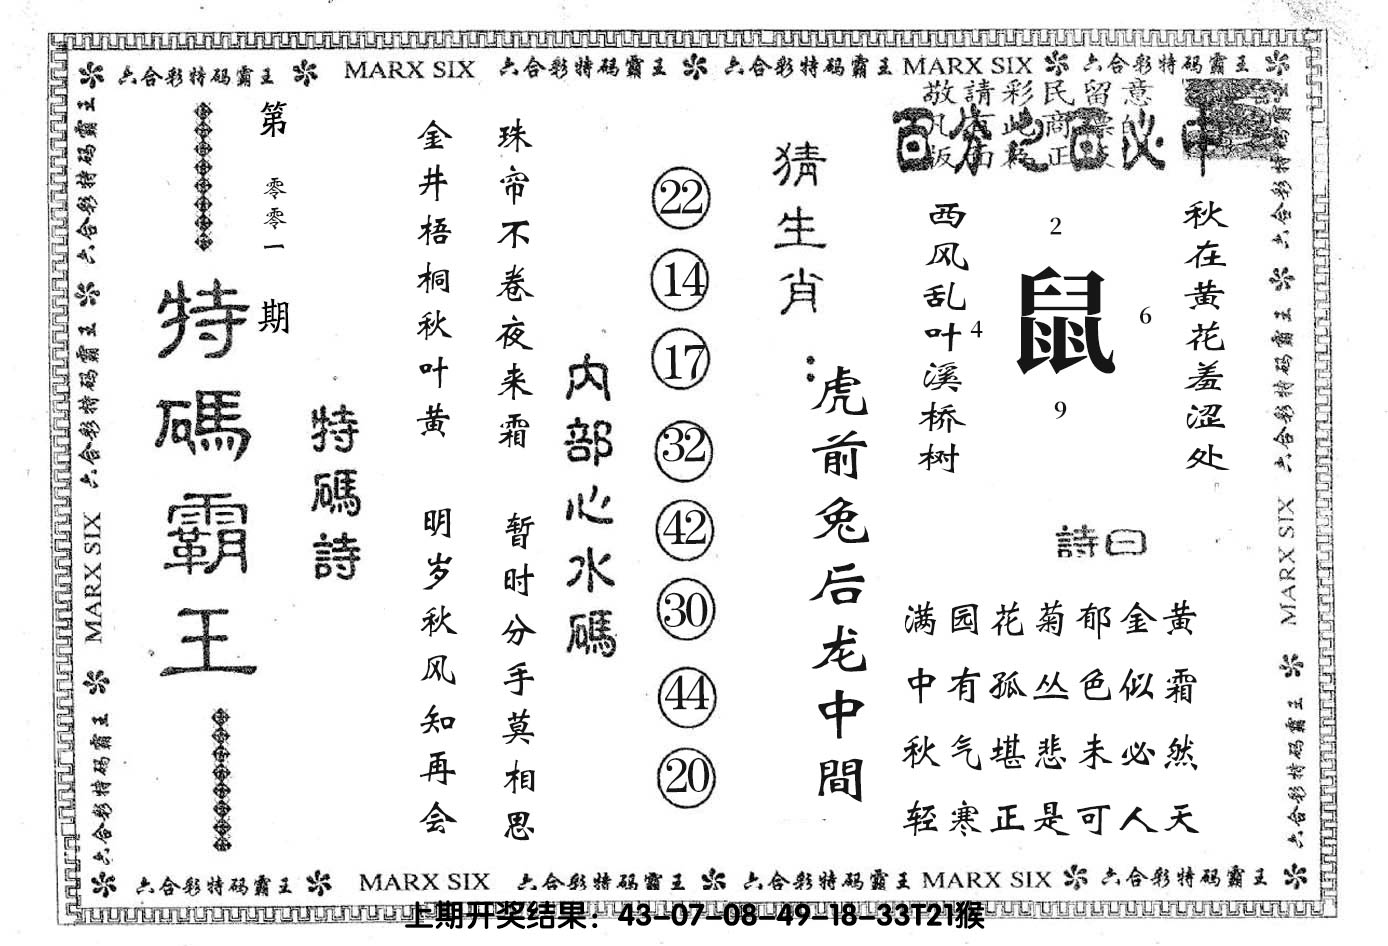 六合彩特码霸王 MARX SIX 六合彩特码霸王 六合彩特码霸王 MARX SIX 六合彩特码霸王
敬請彩民留意
百分之百必中
第零零一期
特碼霸王
特碼詩
金井梧桐秋叶黄
珠帘不卷夜来霜
明岁秋风知再会
暂时分手莫相思
内部心水碼
22
14
17
32
42
30
44
20
猜生肖：
虎前兔后龙中間
西风乱叶溪桥树
2
4
鼠
6
9
秋在黄花羞涩处
詩曰
满园花菊郁金黄
中有孤丛色似霜
秋气堪悲未必然
轻寒正是可人天
六合彩特码霸王 MARX SIX 六合彩特码霸王 六合彩特码霸王
六合彩特码霸王 MARX SIX 六合彩特码霸王 六合彩特码霸王
六合彩特码霸王 MARX SIX 六合彩特码霸王 六合彩特码霸王 MARX SIX 六合彩特码霸王
上期开奖结果：43-07-08-49-18-33T21猴